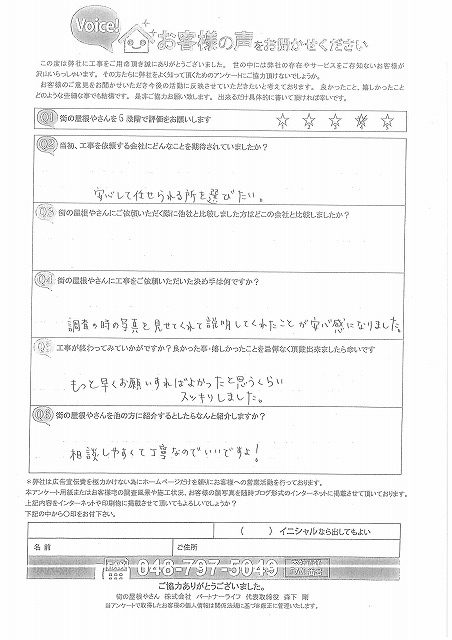 Voice!
お客様の声をお聞かせください
この度は弊社に工事をご用命頂き誠にありがとうございました。 世の中には弊社の存在やサービスをご存知ないお客様が
沢山いらっしゃいます。その方たちに弊社をよく知って頂くためのアンケートにご協力頂けないでしょうか。
お客様のご意見をお聞かせいただき今後の活動に反映させていただきたいと考えております。 良かったこと、嬉しかったこと
どのような些細な事でも結構です。 是非ご協力お願い致します。 出来るだけ具体的に書いて頂ければ幸いです。
Q1 街の屋根やさんを5段階で評価をお願いします ☆ ☆ ☆ ☆ ☆
Q2 当初、工事を依頼する会社にどんなことを期待されていましたか?
安心して任せられる所を選びたい。
Q3 街の屋根やさんにご依頼いただく際に他社と比較しました方はどこの会社と比較しましたか?
Q4 街の屋根やさんに工事をご依頼いただいた決め手は何ですか?
調査の時の写真を見せてくれて説明してくれたことが安心感になりました。
Q5 工事が終わってみていかがですか?良かった事・嬉しかったことを忌憚なく頂戴出来ましたら幸いです
もっと早くお願いすればよかったと思うくらい
スッキリしました。
Q6 街の屋根やさんを他の方に紹介するとしたらなんと紹介しますか?
相談しやすくて丁寧なのでいいですよ!
*弊社は広告宣伝費を極力かけない為にホームページだけを頼りにお客様への営業活動を行っております。
本アンケート用紙またはお客様宅の調査風景や施工状況、お客様の顔写真を随時ブログ形式のインターネットに掲載させて頂いております。
上記内容をインターネットや印刷物に掲載させて頂いてもよろしいでしょうか?
下記の中から○印をお付下さい。
( ) イニシャルなら出してもよい
名 前 ご住所
048-797-5049
ご協力ありがとうございました。
街の屋根やさん 株式会社 パートナーライフ 代表取締役 森下 剛
当アンケートで取得したお客様の個人情報は関係法規に基づき厳正に管理いたします。